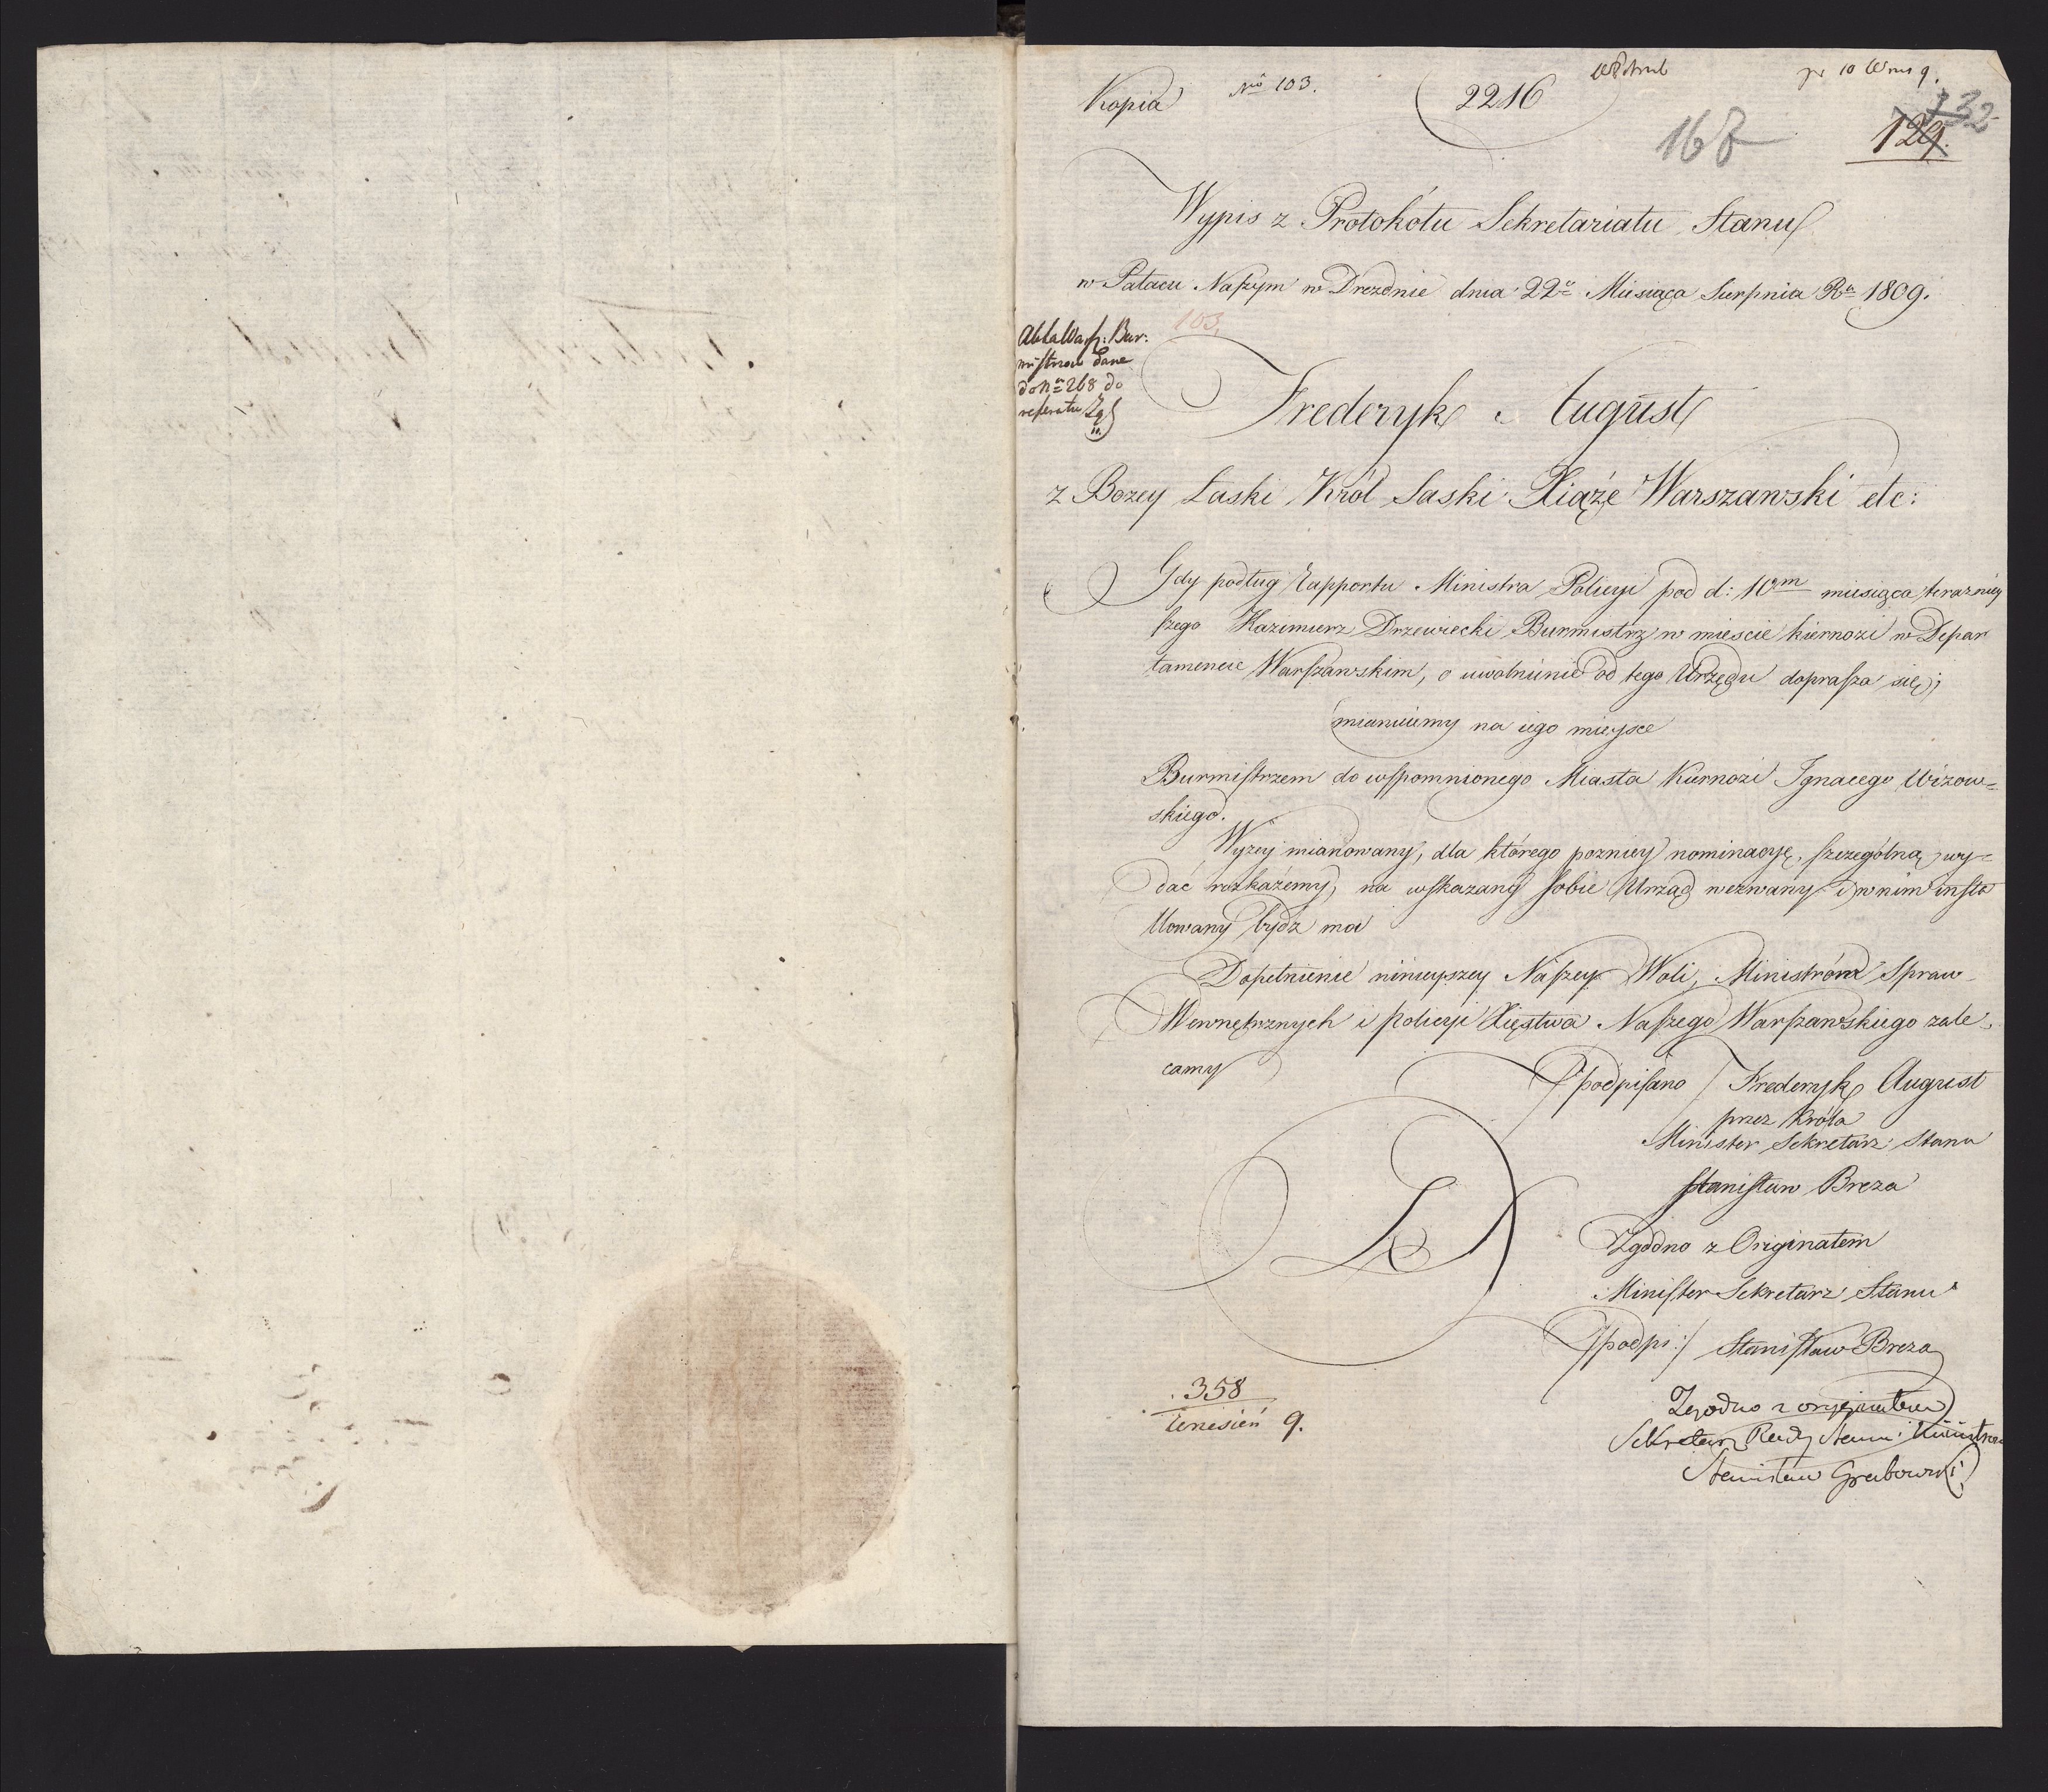 Kopia
No 103.
2216
pr 10 
168
129.
132
Wypis z Protokółu Sekretariatu Stanu
w Pałacu Naszym w Dreznie dnia 22o Miesiąca Sierpnia Ru 1809.
103.
Akta Warsz: Bur:
mistrzów dane
do Nu 268 do
referatu
Frederyk August
z Bozey Łaski Król Saski Xiąże Warszawski etc:
Gdy podług Rapportu Ministra Policyi pod d: 10em miesiąca teraźniey
szego Kazimierz Drzewiecki Burmistrz w miescie Kiernozi w Depar
tamencie Warszawskim, o uwolnienie od tego Urzędu doprasza się;
mianuiemy na iego mieysce
Burmistrzem do wspomnionego Miasta Kiernozi Ignacego Wizow=
skiego.
Wyzey mianowany, dla którego pozniey nominacyę szczególną wy=
dać rozkażemy, na wskazany sobie Urząd wezwany i w nim insta
llowany bydz ma
Dopełnienie ninieyszey Naszey Woli, Ministróm Spraw
Wewnętrznych i Policyi Xięstwa Naszego Warszawskiego zale=
camy
/podpisano/ Frederyk August
przez Króla
Minister Sekretarz Stanu
Stanisław Breza
Zgodno z Originałem
Minister Sekretarz Stanu
/podpi:/ Stanisław Breza
358
Wrzesień 9.
Zgodno z oryginałem
Sekretarz Rady Stanu i Ministrów
Stanisław Grabowski